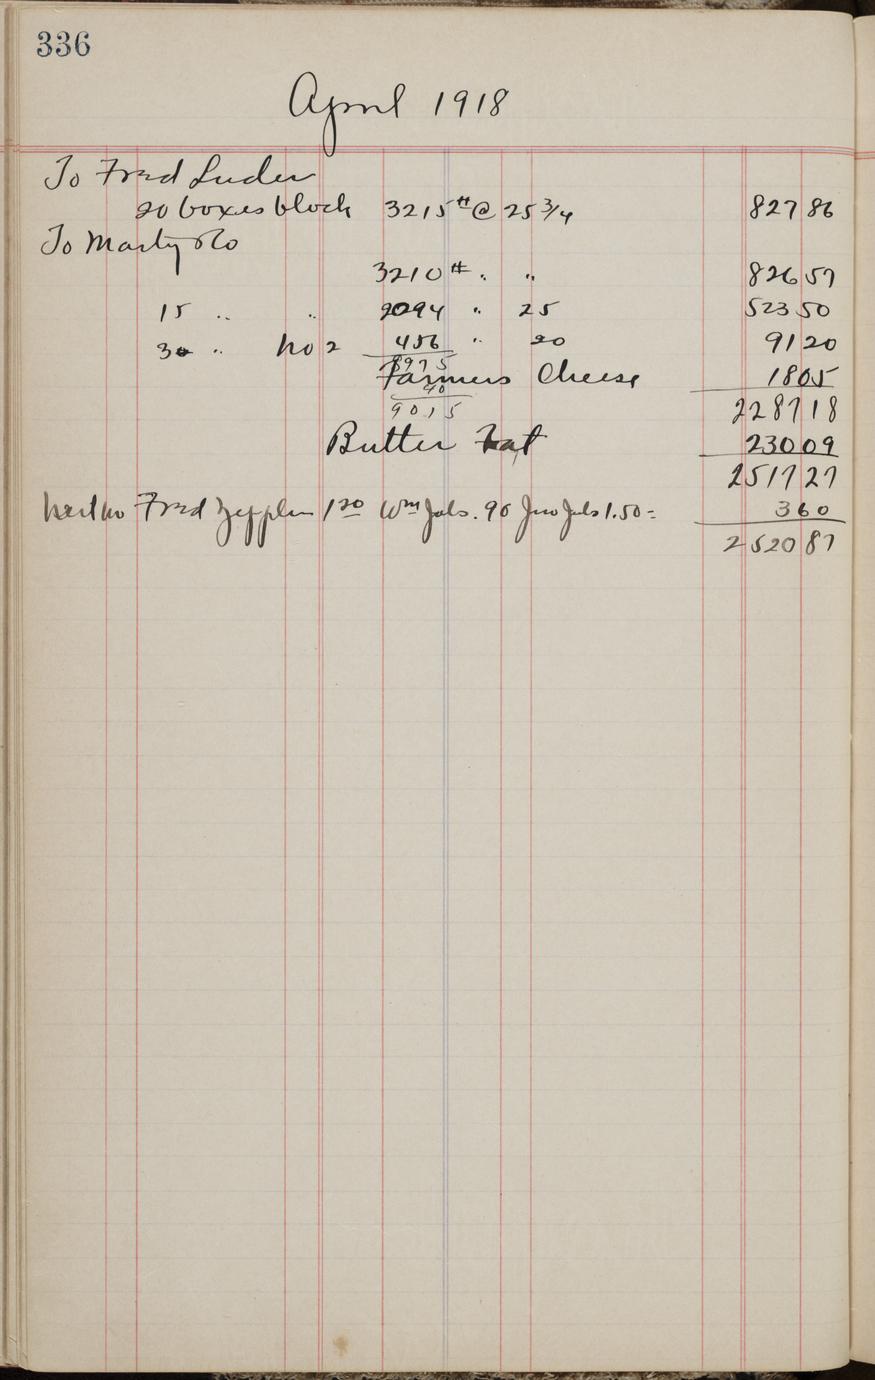 336
April 1918
To Fred Luder
20 boxes block 3215# @ 25 3/4 827 86
To Marty & Co
3210 # " " 826 57
15 " " 2094 " 25 523 50
3 " No 2 456 " 20 91 20
8975
Farmers Cheese 18 05
40
9015 2287 18
Butter Fat 230 09
2517 27
Fred Zepplin 1 20 Wm Jabs .90 Jno Jabs 1.50 = 3 60
2520 87